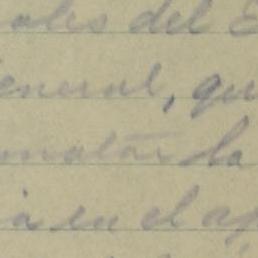 ales del E
eneral, qu
matar la
ia en el ap